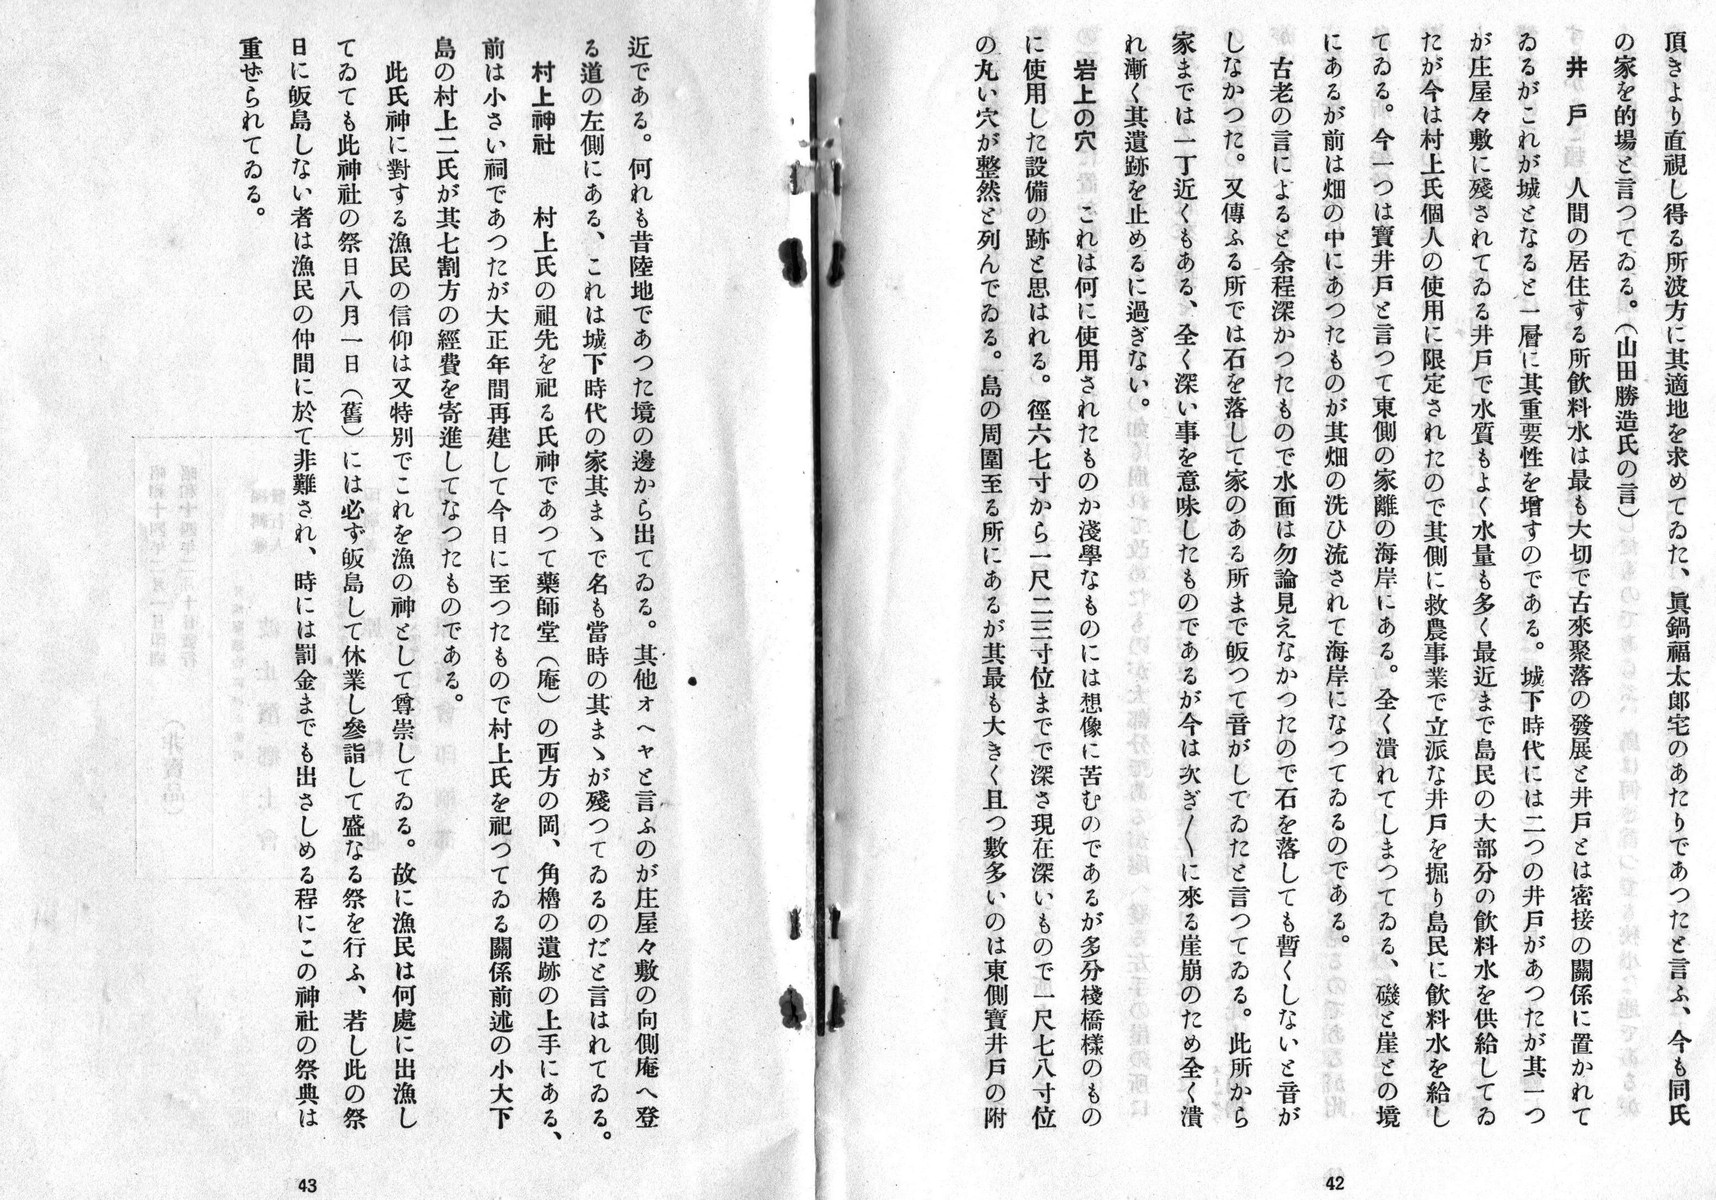 頂きより直視し得る所波方に其適地を求めてゐた、眞鍋福太郎宅のあたりであつたと言ふ、今も同氏
の家を的場と言つてゐる。（山田勝造氏の言）
井　戸　人間の居住する所飲料水は最も大切で古來聚落の發展と井戸とは密接の關係に置かれて
ゐるがこれが城となると一層に其重要性を増すのである。城下時代には二つの井戸があつたが其一つ
が庄屋々敷に殘されてゐる井戸で水質もよく水量も多く最近まで島民の大部分の飲料水を供給してゐ
たが今は村上氏個人の使用に限定されたので其側に救農事業で立派な井戸を掘り島民に飲料水を給し
てゐる。今一つは寶井戸と言つて東側の家離の海岸にある。全く潰れてしまつてゐる、磯と崖との境
にあるが前は畑の中にあつたものが其畑の洗ひ流されて海岸になつてゐるのである。
古老の言によると余程深かつたもので水面は勿論見えなかつたので石を落しても暫くしないと音が
しなかつた。又傳ふる所では石を落して家のある所まで皈つて音がしてゐたと言つてゐる。此所から
家までは一丁近くもある、全く深い事を意味したものであるが今は次ぎ〱に來る崖崩のため全く潰
れ漸く其遺跡を止めるに過ぎない。
岩上の穴　これは何に使用されたものか淺學なものには想像に苦むのであるが多分棧橋樣のもの
に使用した設備の跡と思はれる。徑六七寸から一尺二三寸位までで深さ現在深いもので一尺七八寸位
の丸い穴が整然と列んでゐる。島の周圍至る所にあるが其最も大きく且つ數多いのは東側寶井戸の附
42
近である。何れも昔陸地であつた境の邊から出てゐる。其他ォヘャと言ふのが庄屋々敷の向側庵へ登
る道の左側にある、これは城下時代の家其まゝで名も當時の其まゝが殘つてゐるのだと言はれてゐる。
村上神社　村上氏の祖先を祀る氏神であつて藥師堂（庵）の西方の岡、角櫓の遺跡の上手にある、
前は小さい祠であつたが大正年間再建して今日に至つたもので村上氏を祀つてゐる關係前述の小大下
島の村上二氏が其七割方の經費を寄進してなつたものである。
此氏神に對する漁民の信仰は又特別でこれを漁の神として尊崇してゐる。故に漁民は何處に出漁し
てゐても此神社の祭日八月一日（舊）には必ず皈島して休業し參詣して盛なる祭を行ふ、若し此の祭
日に皈島しない者は漁民の仲間に於て非難され、時には罰金までも出さしめる程にこの神社の祭典は
重ぜられてゐる。
43